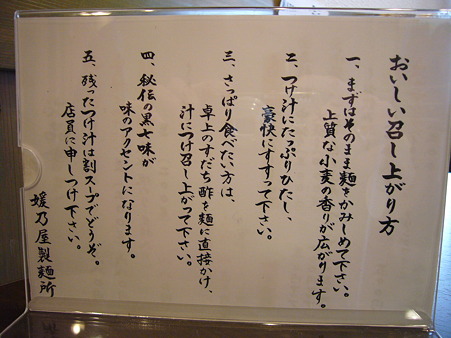 おいしい召し上がり方
一、まずはそのまま麺をかみしめて下さい。
上質な小麦の香りが広がります。
二、つけ汁にたっぷりひたし、
豪快にすすって下さい。
三、さっぱり食べたい方は、
卓上のすだち酢を麺に直接かけ、
汁につけ召し上がって下さい。
四、秘伝の黒七味が
味のアクセントになります。
五、残ったつけ汁は割スープでどうぞ。
店員に申しつけ下さい。
媛乃屋製麺所